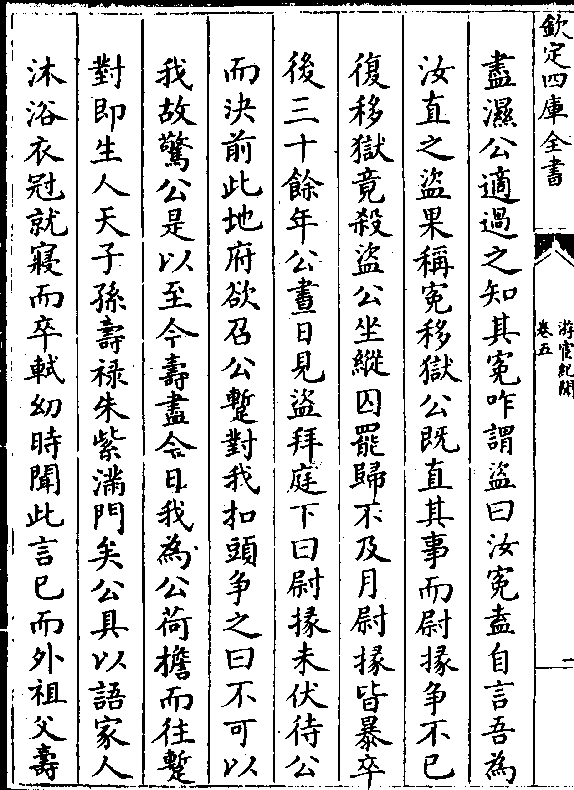 欽定四庫全書
游宦紀聞
卷五
二
盡濕公適過之知其冤咋謂盜曰汝冤盍自言吾為
汝直之盜果稱冤移獄公既直其事而尉掾争不已
復移獄竟殺盜公坐縱囚罷歸不及月尉掾皆暴卒
後三十餘年公晝日見盜拜庭下曰尉掾未伏待公
而決前此地府欲召公蹔對我扣頭争之曰不可以
我故驚公是以至今壽盡今日我為公荷擔而往蹔
對即生人天子孫壽禄朱紫滿門矣公具以語家人
沐浴衣冠就寢而卒軾幼時聞此言已而外祖父壽